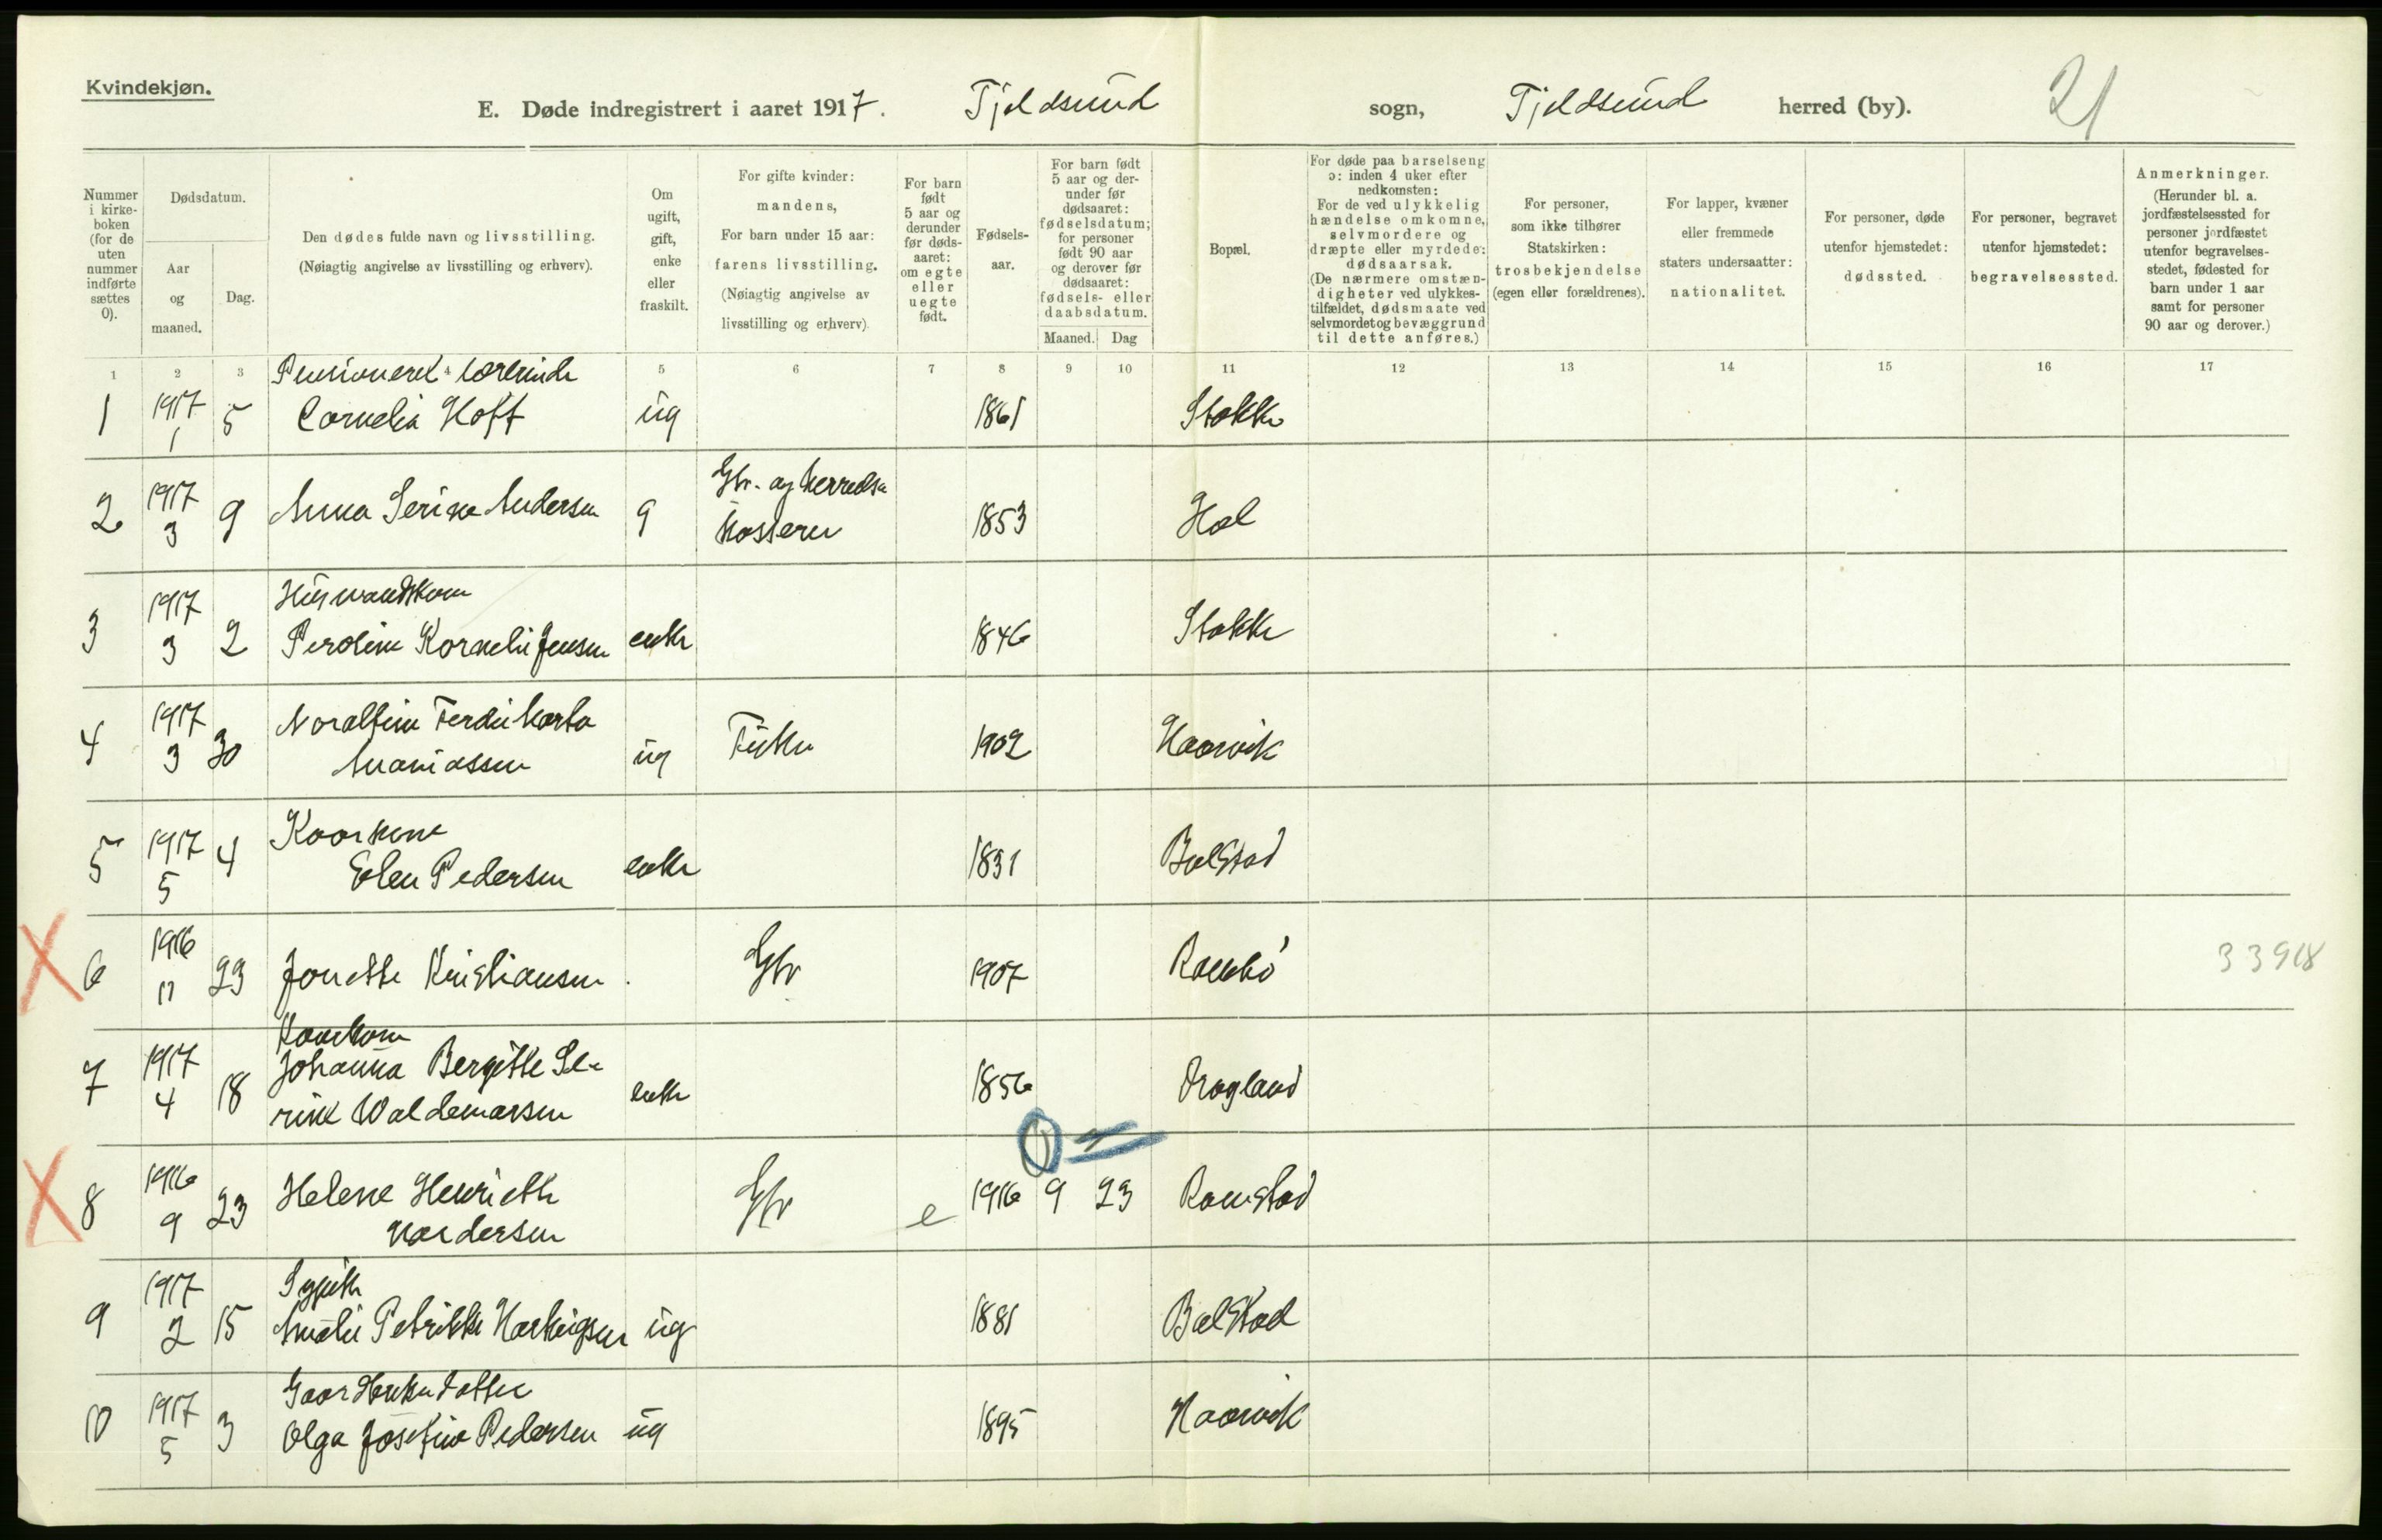 Kvindekjøn.
E. Døde indregistrert i aaret 1917. Tjeldsund sogn, Tjeldsund herred (by). 21
Nummer i kirke-boken (for de uten nummer indførte sættes 0).
Dødsdatum.
Aar og maaned.
Dag.
Den dødes fulde navn og livsstilling.
(Nøiagtig angivelse av livsstilling og erhverv).
Om ugift, gift, enke eller fraskilt.
For gifte kvinder: mandens,
For barn under 15 aar: farens livsstilling.
(Nøiagtig angivelse av livsstilling og erhverv).
For barn født 5 aar og derunder før døds-aaret: om egte eller uegte født.
Fødsels-aar.
For barn født 5 aar og der-under før dødsaaret: fødselsdatum; for personer født 90 aar og derover før dødsaaret: fødsels- eller daabsdatum.
Maaned. Dag
Bopæl.
For døde paa barselseng ɔ: inden 4 uker efter nedkomsten:
For de ved ulykkelig hændelse omkomne, selvmordere og dræpte eller myrdede: dødsaarsak.
(De nærmere omstæn-digheter ved ulykkes-tilfældet, dødsmaate ved selvmordet og bevæggrund til dette anføres.)
For personer, som ikke tilhører Statskirken: trosbekjendelse (egen eller forældrenes).
For lapper, kvæner eller fremmede staters undersaatter: nationalitet.
For personer, døde utenfor hjemstedet: dødssted.
For personer, begravet utenfor hjemstedet: begravelsessted.
Anmerkninger.
(Herunder bl. a. jordfæstelsessted for personer jordfæstet utenfor begravelses-stedet, fødested for barn under 1 aar samt for personer 90 aar og derover.)
1 2 3 4 5 6 7 8 9 10 11 12 13 14 15 16 17
Pensioneret lærerinde
1 1917 1 5 Cornelia Hoff ug 1861 Stokke
Gbr. og herreds
2 1917 3 9 Anna Serine Andersen g kasserer 1853 Hol
Husmandskone
3 1917 3 2 Peroline Kornelie Jensen enke 1846 Stokke
4 1917 3 30 Noralfine Ferdii Marta
Ananiassen ug Fisker 1902 Haarvik
Kaarkone
5 1917 5 4 Elen Pedersen enke 1831 Balstad
6 1916 11 23 Jonette Kristiansen Gbr 1907 33918
Kaarkone
7 1917 4 18 Johanna Bergitte Se-
rine Waldemarsen enke 1856 Dragland
8 1916 9 23 Helene Henriette
Hardersen Gbr e 1916 9 23 Ramstad
9 1917 2 15 Amalie Petrikke Hartvigsen ug 1881 Balstad
Gaardbrukerdatter
10 1917 5 3 Olga Josefine Pedersen ug 1895 Haarvik